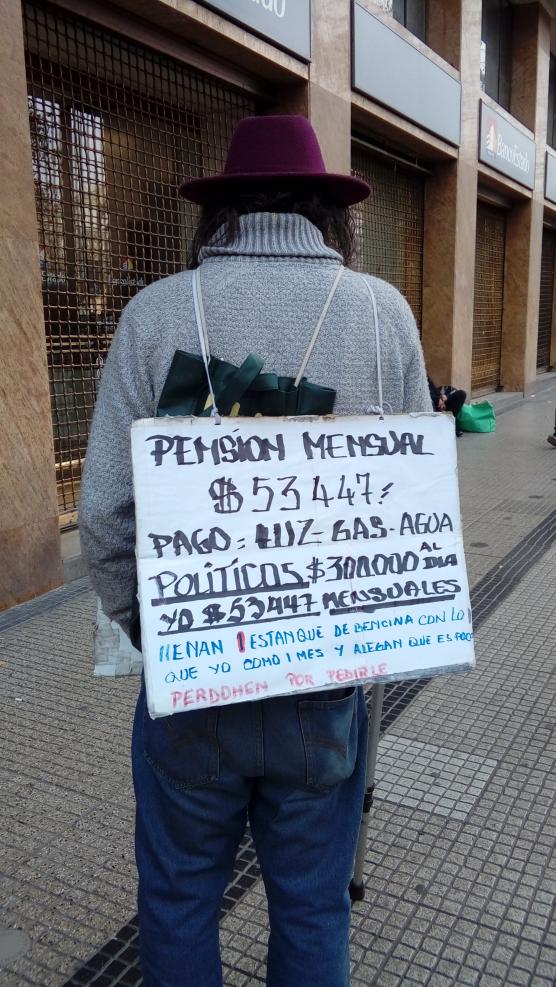 BancoEstado
PENSION MENSUAL
$53447.-
PAGO: LUZ-GAS-AGUA
POLÍTICOS $300.000 AL DIA
YO $53447 MENSUALES
LLENAN 1 ESTANQUE DE BENCINA CON LO
QUE YO COMO 1 MES Y ALEGAN QUE ES POCO
PERDONEN POR PEDIRLE